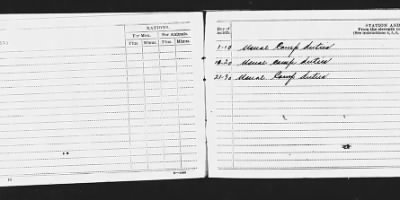 RATIONS.
For Men. For Animals.
Plus. Minus. Plus. Minus.
STATION AND
From the eleventh
(See instructions
1-10 Usual Camp Duties
10-20 Usual Camp Duties
21-30 Usual Camp Duties